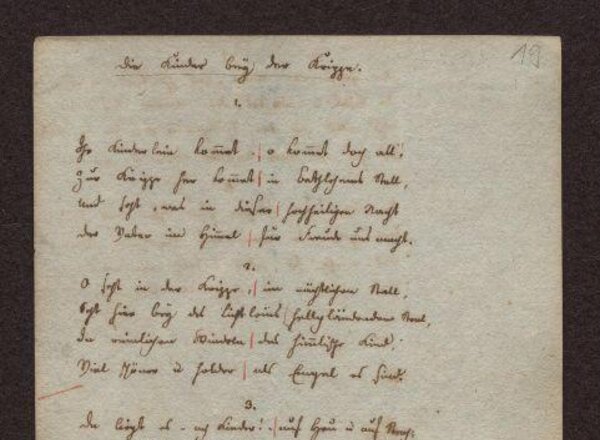 19
Die Kinder bey der Krippe.
1.
Ihr Kinderlein kommet, o kommet doch all'!
Zur Krippe her kommet in Bethlehems Stall,
Und seht, was in dieser hochheiligen Nacht
Der Vater im Himel für Freude uns macht.
2.
O seht in der Krippe, im nächtlichen Stall,
Seht hier bey des Lichtleins hellglänzendem Stral,
In reinlichen Windeln das himlische Kind,
Viel schöner u holder, als Engel es sind.
3.
Da liegt es – ach Kinder! auf Heu u auf Stroh;